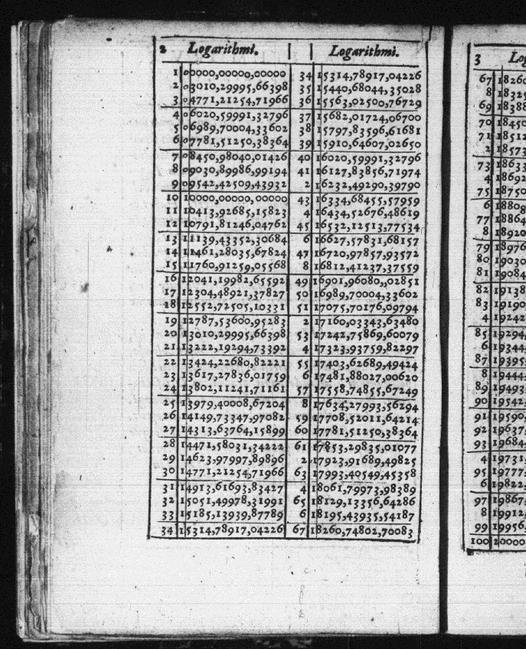 2 Logarithmi. Logarithmi.
1 00000,00000,00000 34 15314,78917,04226
2 03010,29995,66398 35 15440,68044,35028
3 04771,21254,71966 36 15563,02500,76729
4 06020,59991,32796 37 15682,01724,06700
5 06989,70004,33602 38 15797,83596,61681
6 07781,51250,38364 39 15910,64607,02650
7 08450,98040,01426 40 16020,59991,32796
8 09030,89986,99194 41 16127,83856,71974
9 09542,42509,43932 2 16232,49290,39790
10 10000,00000,00000 43 16334,68455,57959
11 10413,92685,15823 4 16434,52676,48619
12 10791,81246,04762 45 16532,12513,77534
13 11139,43352,30684 6 16627,57831,68157
14 11461,28035,67824 47 16720,97857,93572
15 11760,91259,05568 8 16812,41237,37559
16 12041,19982,65592 49 16901,96080,02851
17 12304,48921,37827 50 16989,70004,33602
18 12552,72505,10331 51 17075,70176,09794
19 12787,53600,95283 2 17160,03343,63480
20 13010,29995,66398 53 17242,75869,60079
21 13222,19294,73392 4 17323,93759,82297
22 13424,22680,82221 55 17403,62689,49424
23 13617,27836,01759 6 17481,88027,00620
24 13802,11241,71161 57 17558,74855,67249
25 13979,40008,67204 8 17634,27993,56294
26 14149,73347,97082 59 17708,52011,64214
27 14313,63764,15899 60 17781,51250,38364
28 14471,58031,34222 61 17853,29835,01077
29 14623,97997,89896 2 17923,91689,49825
30 14771,21254,71966 63 17993,40549,45358
31 14913,61693,83427 4 18061,79973,98389
32 15051,49978,31991 65 18129,13356,64286
33 15185,13939,87789 6 18195,43935,54187
34 15314,78917,04226 67 18260,74802,70083
3 Log
67 18260
8 18325
69 18388
70 18450
71 18512
2 18573
73 18633
4 18692
75 18750
6 18808
77 18864
8 18920
79 18976
80 19030
81 19084
82 19138
83 19190
4 19242
85 19294
6 19344
87 19395
8 19444
89 19493
90 19542
91 19590
92 19637
93 19684
4 19731
95 19777
6 19822
97 19867
8 19912
99 19956
100 20000